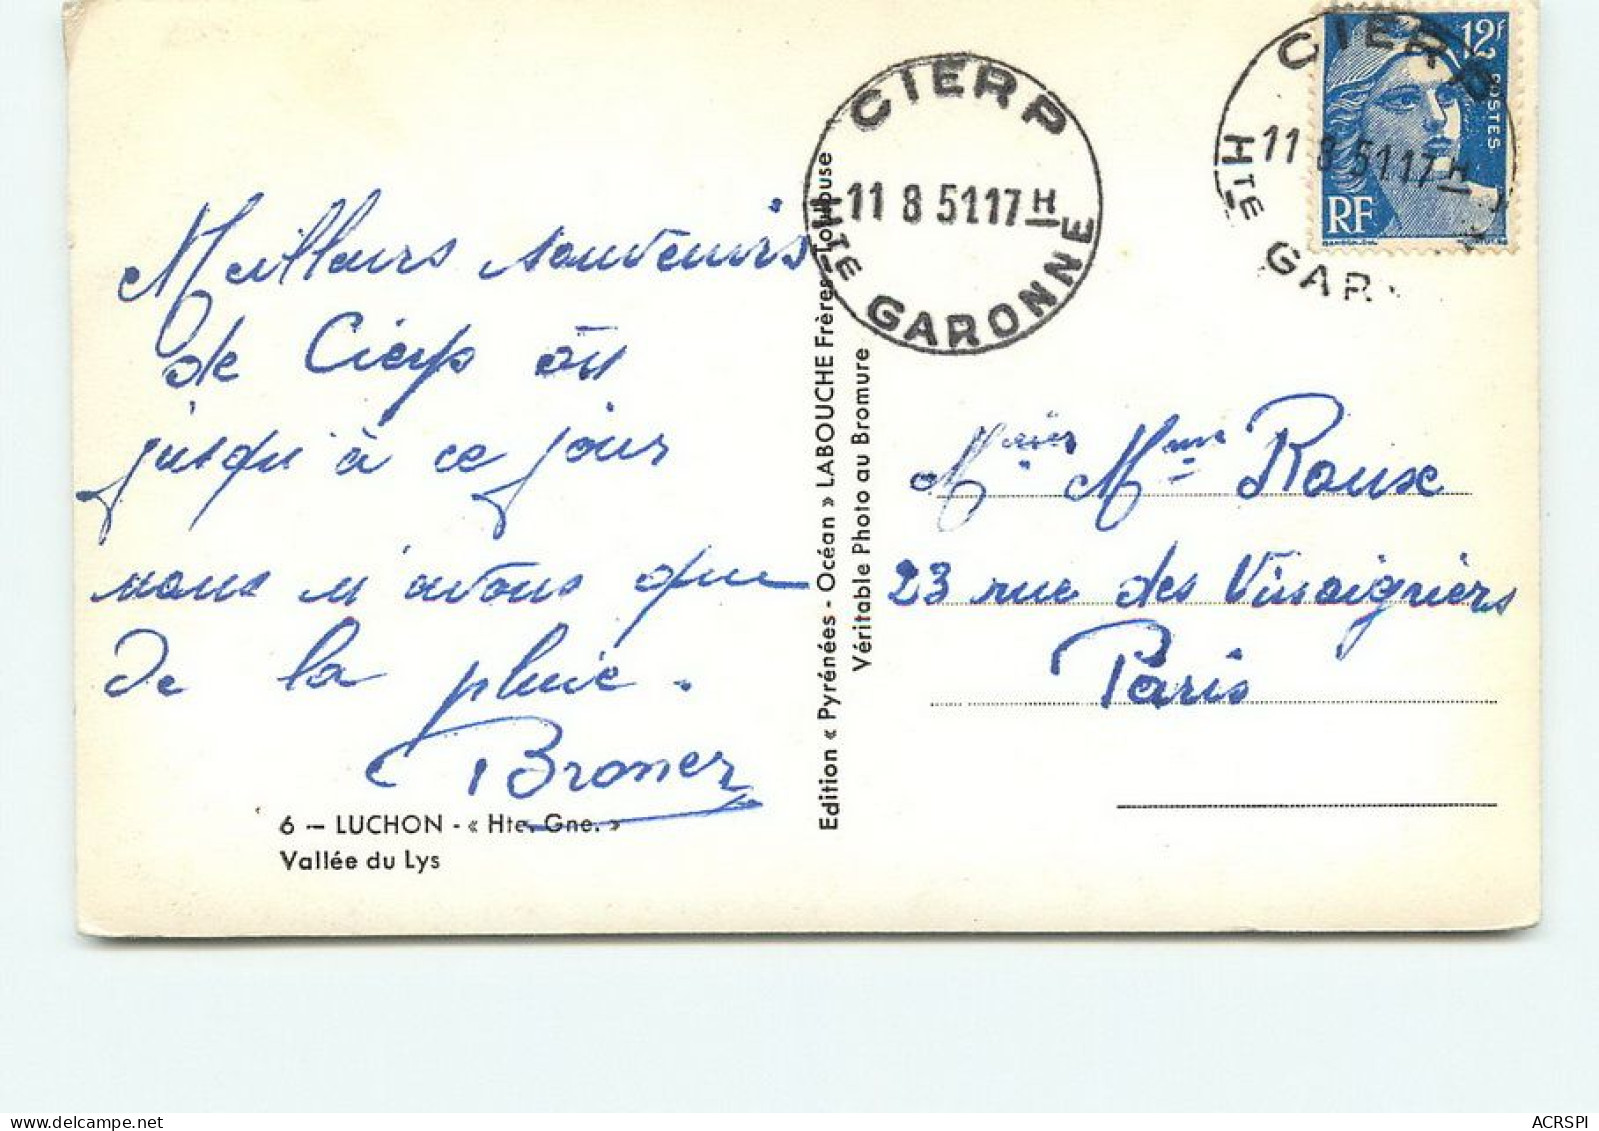 Meilleurs souvenirs
de Cierp où
jusqu'à ce jour
nous n'avons que
de la pluie.
6 — LUCHON - « Hte. Gne. »
Vallée du Lys
Edition « Pyrénées - Océan » LABOUCHE Frères - Toulouse
Véritable Photo au Bromure
CIERP
11 8 51 17 H
HTE GARONNE
CIERP
11 8 51 17 H
HTE GAR
12F
POSTES
RF
Mme Roux
23 rue des Vinaigriers
Paris
ACRSPI